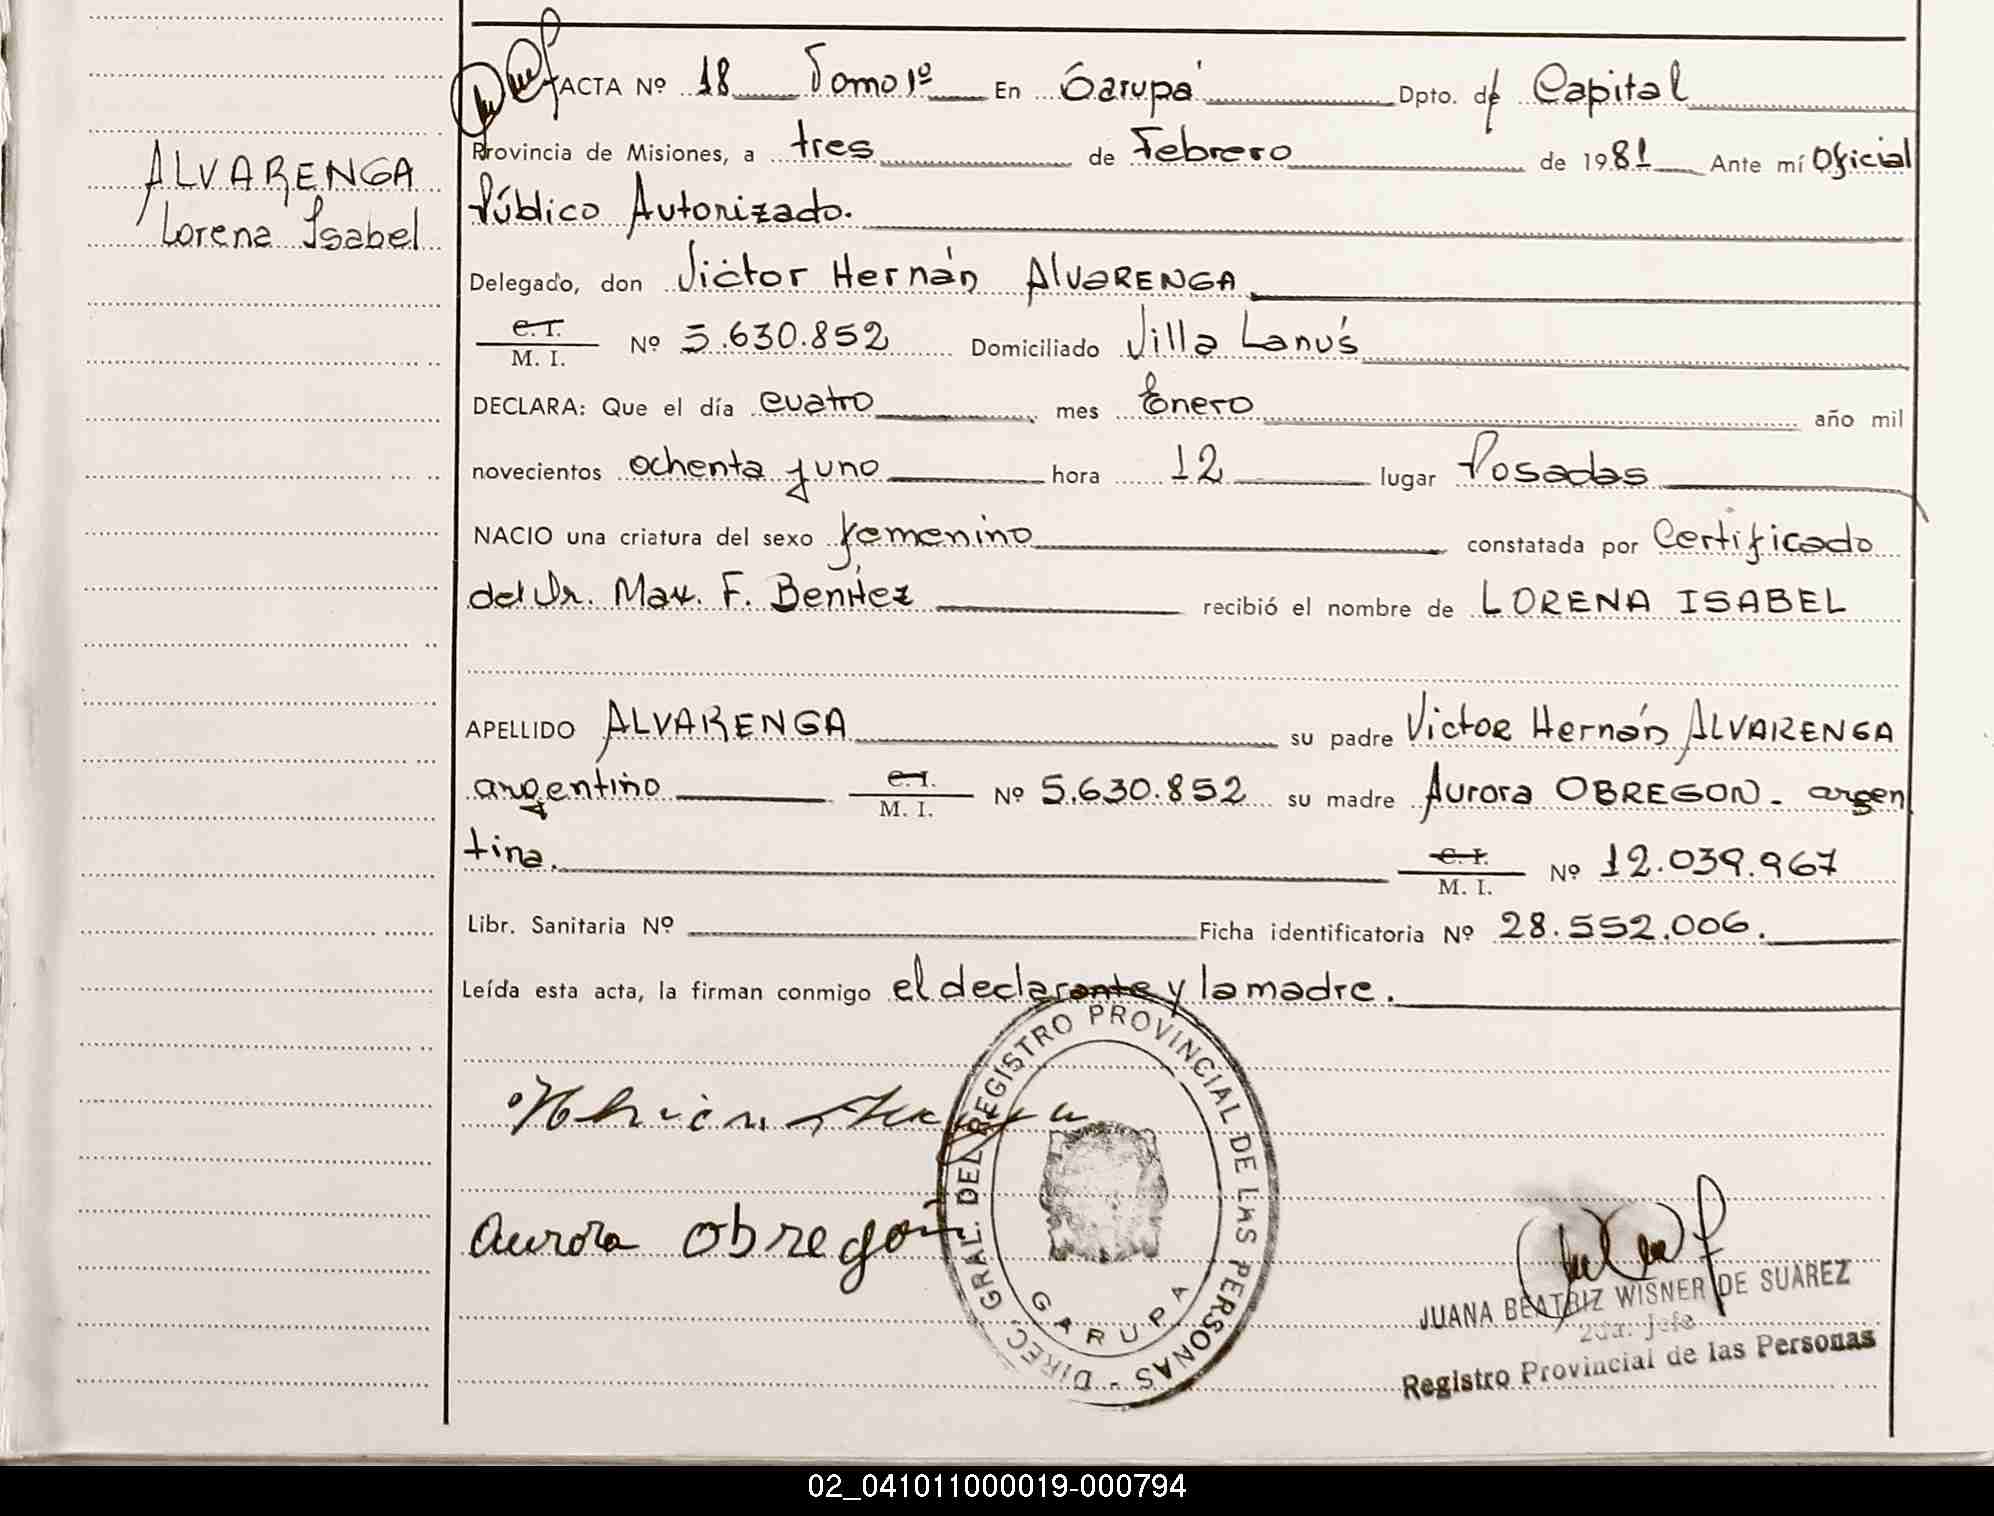 ACTA Nº 18 Tomo 1º En Garupá Dpto. de Capital
Provincia de Misiones, a tres de Febrero de 1981 Ante mí Oficial
Público Autorizado.
ALVARENGA
Lorena Isabel
Delegado, don Victor Hernán ALVARENGA
C.I.
M. I. Nº 5.630.852 Domiciliado Villa Lanús
DECLARA: Que el día cuatro mes Enero año mil
novecientos ochenta y uno hora 12 lugar Posadas
NACIO una criatura del sexo femenino constatada por Certificado
del Dr. Max. F. Benítez recibió el nombre de LORENA ISABEL
APELLIDO ALVARENGA su padre Victor Hernán ALVARENGA
argentino C.I. M. I. Nº 5.630.852 su madre Aurora OBREGON - argen
tina. C.I. M. I. Nº 12.039.967
Libr. Sanitaria Nº Ficha identificatoria Nº 28.552.006.
Leída esta acta, la firman conmigo el declarante y la madre.
DIREC. GRAL. DEL REGISTRO PROVINCIAL DE LAS PERSONAS -
GARUPA
Aurora Obregón
JUANA BEATRIZ WISNER DE SUAREZ
2da. Jefe
Registro Provincial de las Personas
02_041011000019-000794